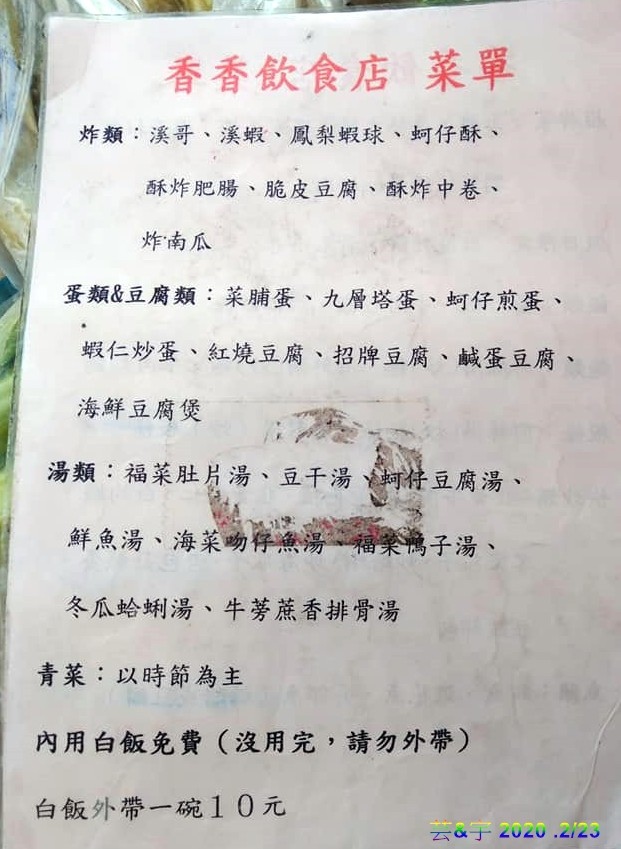 香香飲食店 菜單
炸類：溪哥、溪蝦、鳳梨蝦球、蚵仔酥、
酥炸肥腸、脆皮豆腐、酥炸中卷、
炸南瓜
蛋類&豆腐類：菜脯蛋、九層塔蛋、蚵仔煎蛋、
蝦仁炒蛋、紅燒豆腐、招牌豆腐、鹹蛋豆腐、
海鮮豆腐煲
湯類：福菜肚片湯、豆干湯、蚵仔豆腐湯、
鮮魚湯、海菜吻仔魚湯、福菜鴨子湯、
冬瓜蛤蜊湯、牛蒡蔗香排骨湯
青菜：以時節為主
內用白飯免費（沒用完，請勿外帶）
白飯外帶一碗10元
芸&宇 2020 .2/23